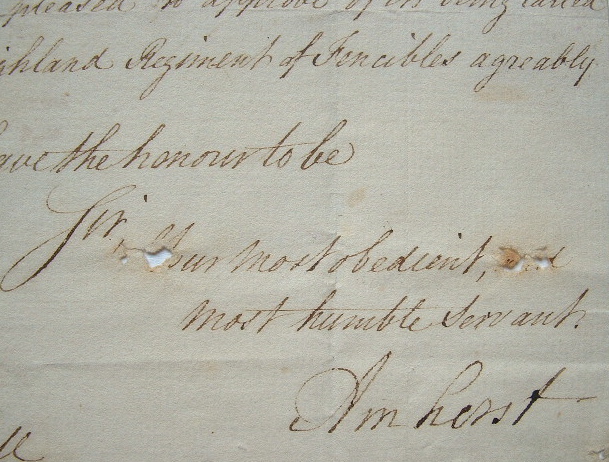 pleased to approve of its being called
ighland Regiment of Fencibles agreably
ave the honour to be
Sir,
Your most obedient, and
most humble Servant.
Amherst